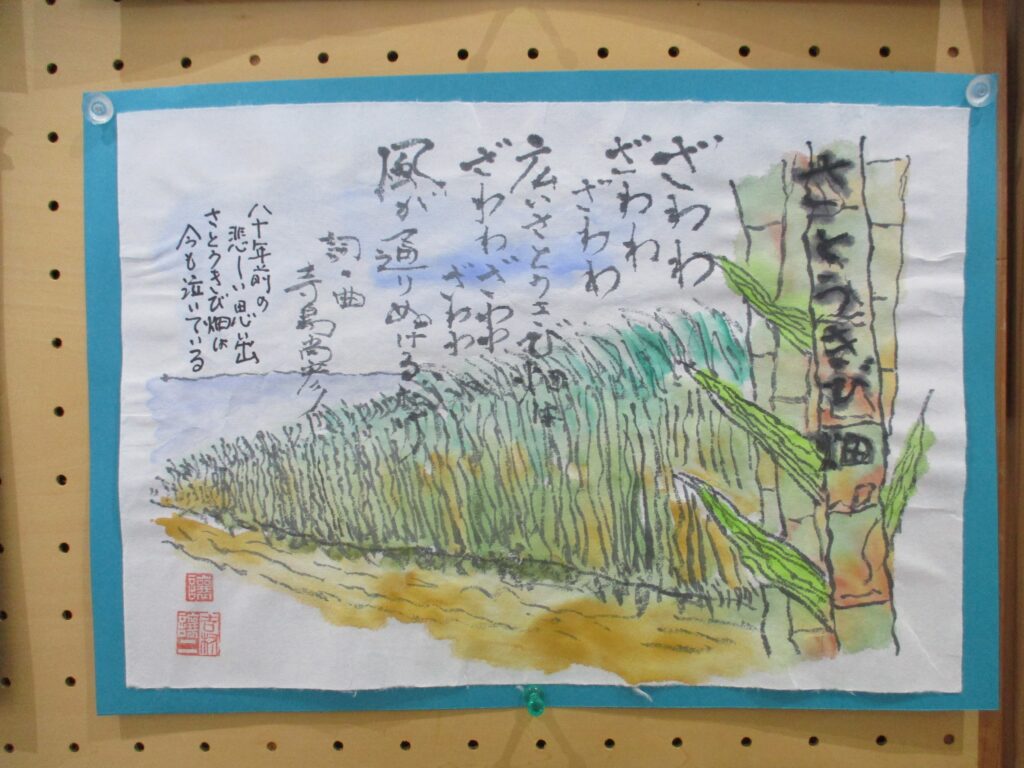 さとうきび畑
ざわわ
ざわわ
ざわわ
広いさとうきび畑は
ざわわざわわ
ざわわ
風が通りぬけるだけ
詞・曲
寺島尚彦
八十年前の
悲しい思い出
さとうきび畑は
今も泣いている